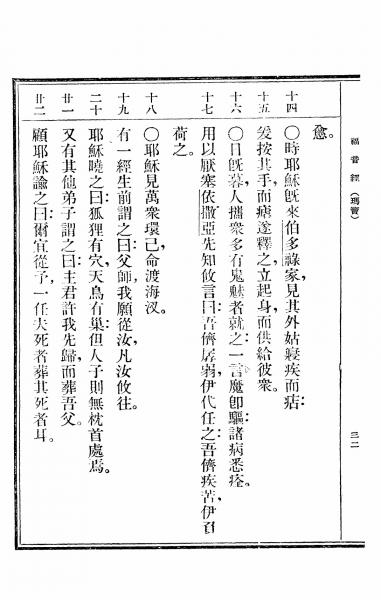 福音經（瑪竇）
三二
愈。
十四 〇時耶穌旣來伯多祿家，見其外姑寢疾而痁：
十五 爰按其手，而瘧遂釋之，立起身，而供給彼衆。
十六 〇日旣暮，人攜衆多有鬼魅者就之，一言魔卽驅，諸病悉痊，
十七 用以厭塞依撒亞先知攸言曰：吾儕孱弱，伊代任之，吾儕疾苦，伊肩
荷之。
十八 〇耶穌見萬衆環己，命渡海汊。
十九 有一經生前謂之曰：父師，我願從汝，凡汝攸往。
二十 耶穌曉之曰：狐狸有穴，天鳥有巢，但人子則無枕首處焉。
廿一 又有其他弟子謂之曰：主君許我先歸，而葬吾父。
廿二 顧耶穌諭之曰：爾宜從予，一任夫死者葬其死者耳。